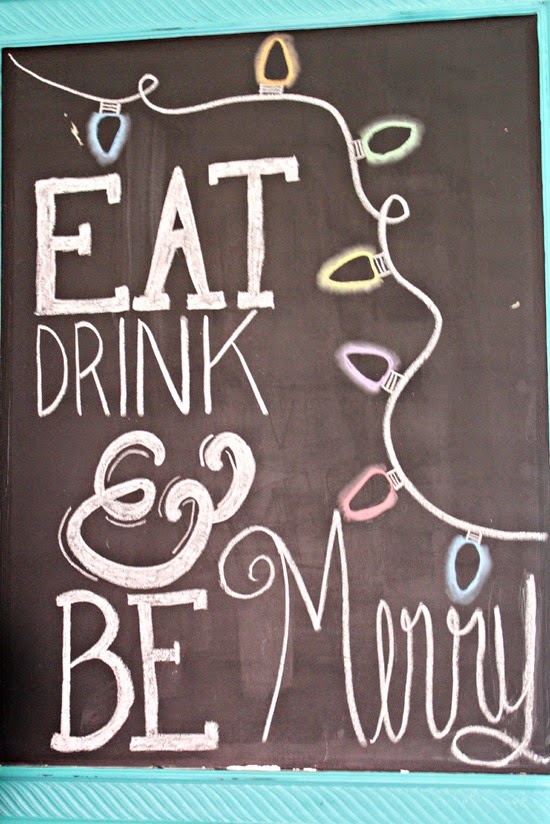 EAT
DRINK
&
BE Merry